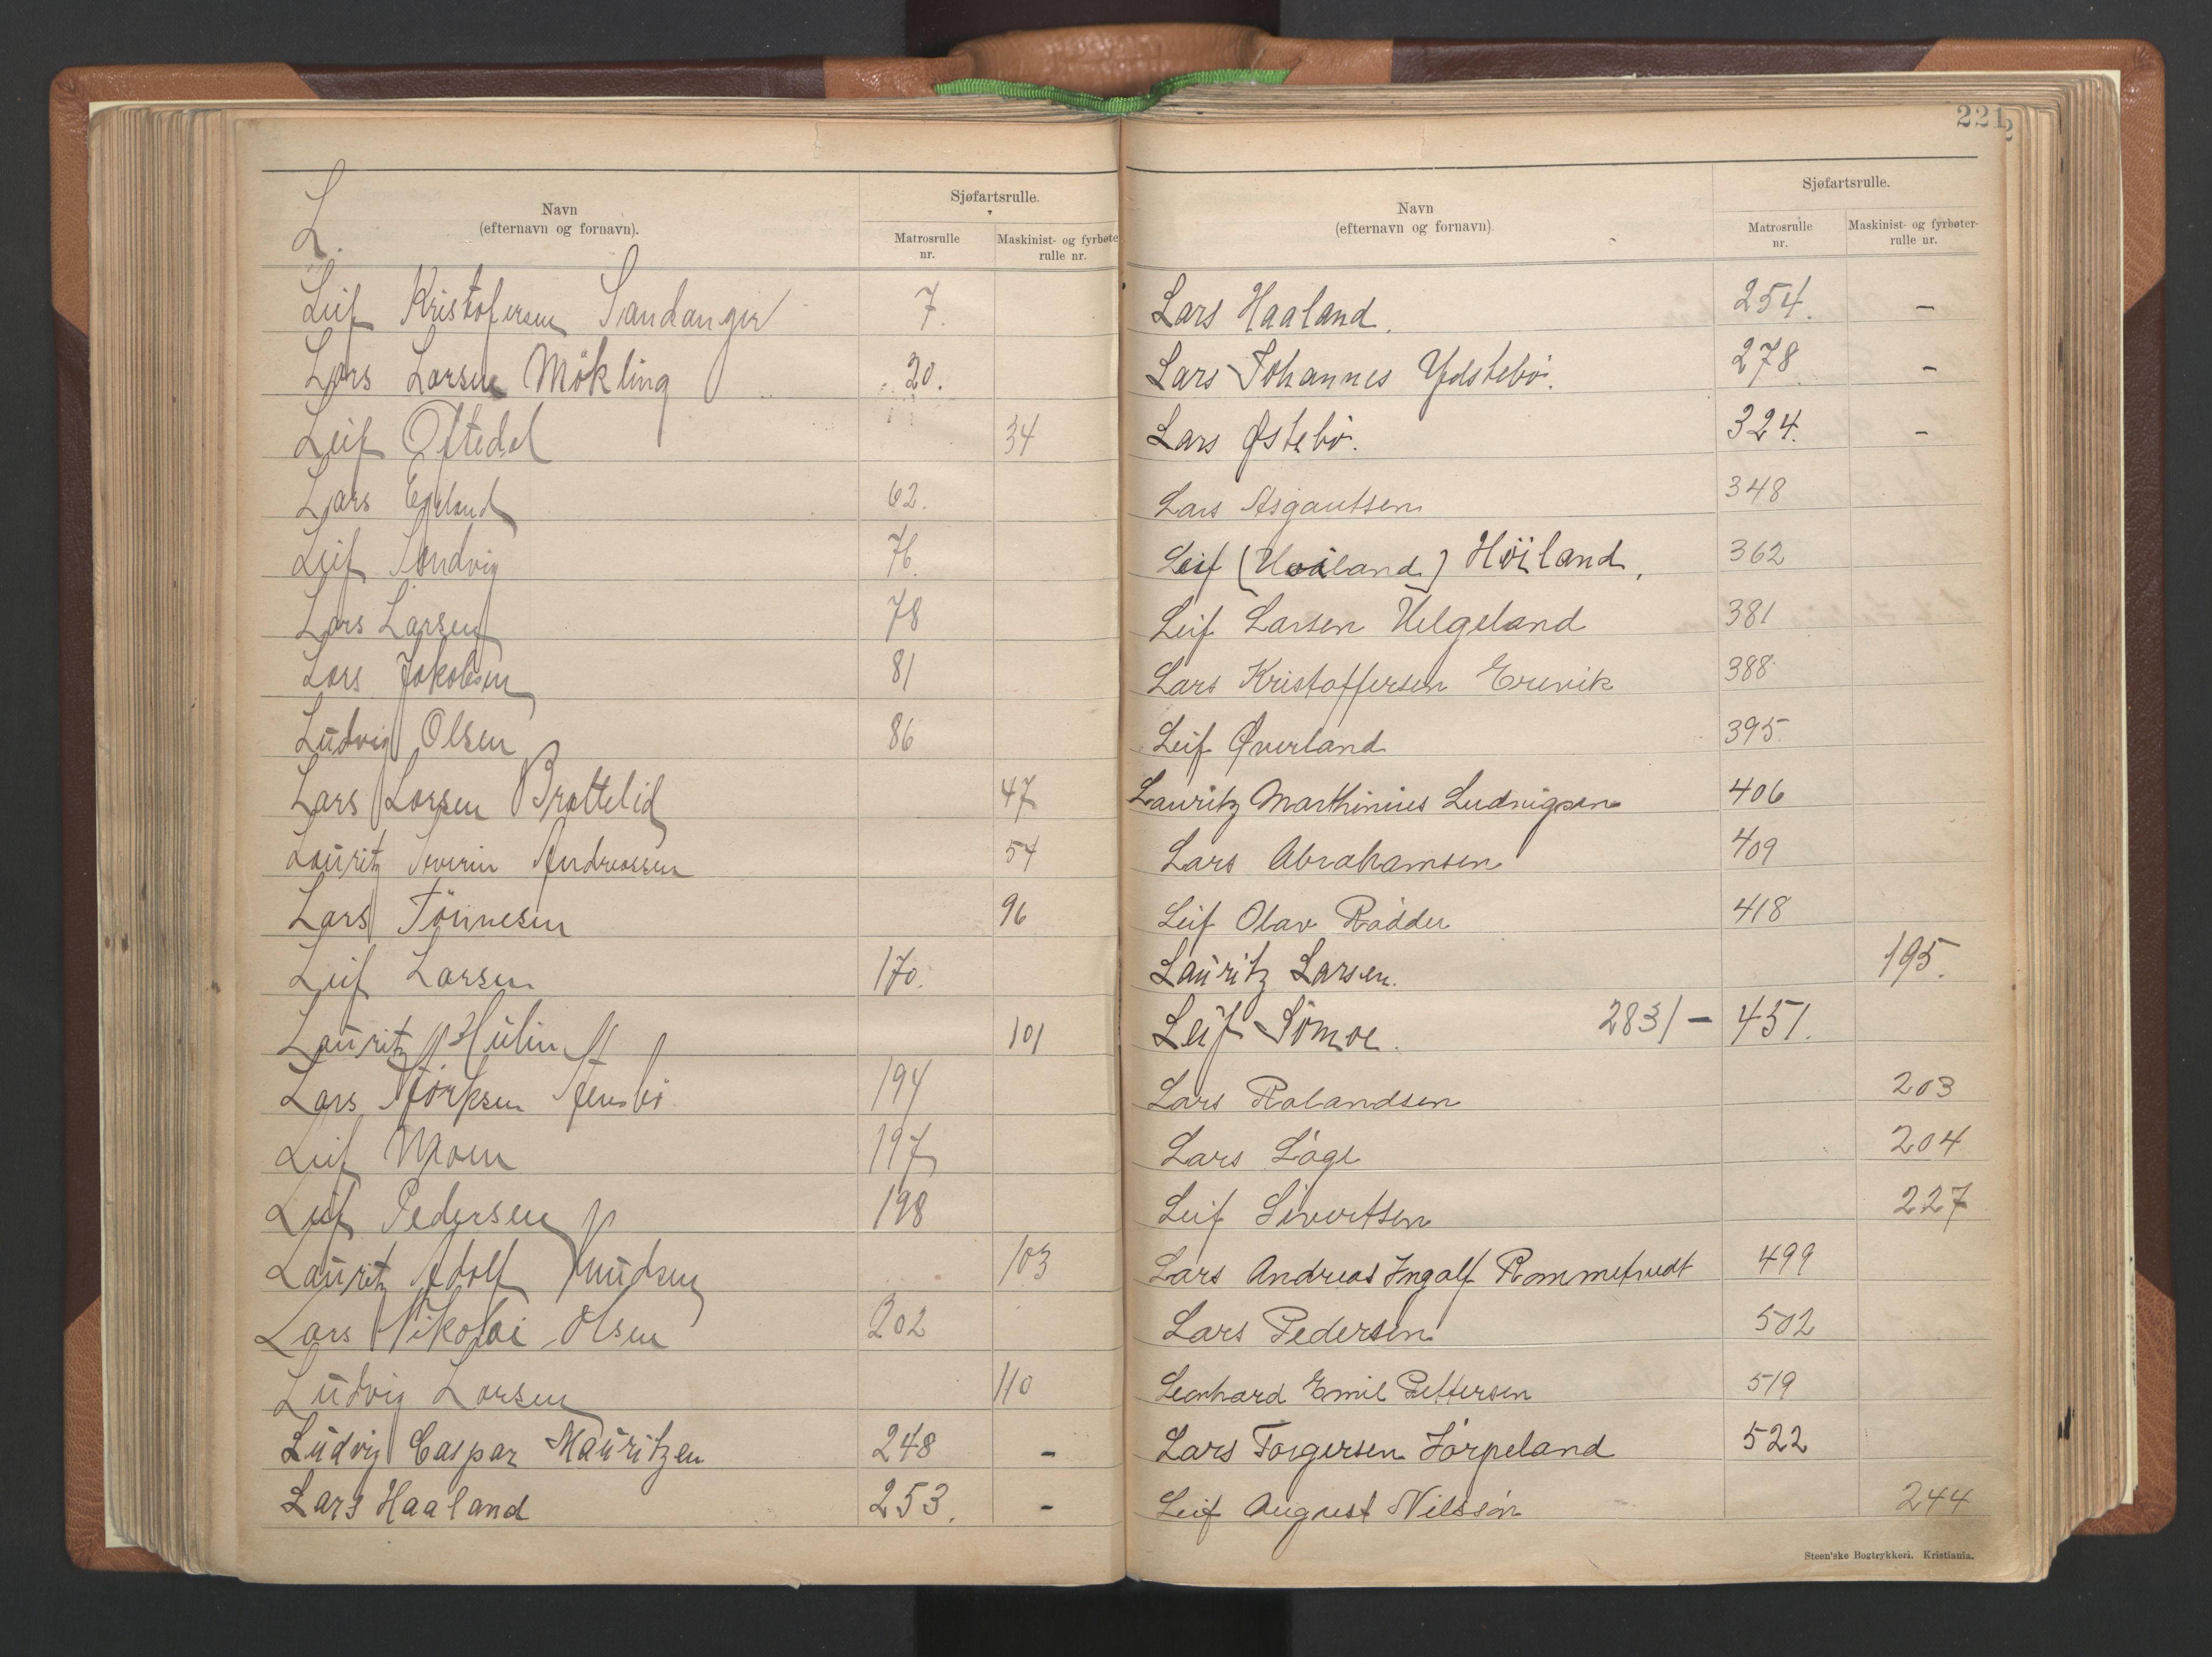 L.
Navn
(efternavn og fornavn).
Sjøfartsrulle.
Matrosrulle
nr.
Maskinist- og fyrbøter-
rulle nr.
Leif Kristofersen Sandanger 7.
Lars Larsen Mökling 20.
Leif Oftedal 34
Lars Egeland 62.
Leif Sandvig 76.
Lars Larsen 78
Lars Jakobsen 81
Ludvig Olsen 86
Lars Larsen Brattelid 47
Lauritz Severin Andreassen 54
Lars Tönnesen 96
Leif Larsen 170.
Lauritz Hülin 101
Lars 194
Leif Moen 197
Leif Pedersen 198
Lauritz Adolf Knudsen 103
Lars Nikolai Olsen 202
Ludvig Larsen 110
Ludvig Caspar Mauritzen 248 -
Lars Haaland 253. -
221
Navn
(efternavn og fornavn).
Sjøfartsrulle.
Matrosrulle
nr.
Maskinist- og fyrbøter-
rulle nr.
Lars Haaland. 254. -
Lars Johannes Ydstebö. 278 -
Lars Østebö. 324. -
Lars Asgautsen 348
Leif (Høiland) Höiland. 362
Leif Larsen Helgeland 381
Lars Kristoffersen Erevik 388
Leif Øverland 395
Lauritz Marthinius Ludvigsen 406
Lars Abrahamsen 409
Leif Olav Rödder 418
Lauritz Larsen. 195.
Leif Sömoe. 283/- 451.
Lars Rolandsen 203
Lars Löge 204
Leif Sivertsen 227
Lars Andreas Ingolf Rommetvedt 499
Lars Pedersen 502
Leonhard Emil Pettersen 519
Lars Torgersen Jörpeland 522
Leif August Nilssön 244
Steen'ske Bogtrykkeri. Kristiania.